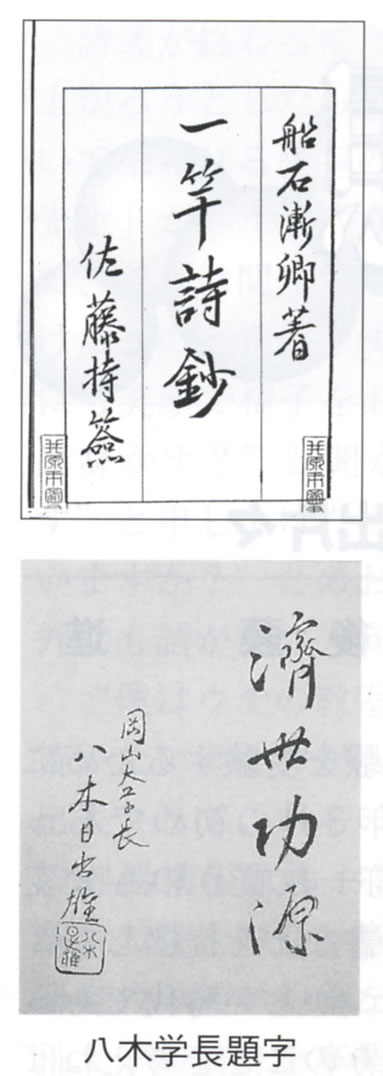 船石漸卿著
一竿詩鈔
佐藤持簽
濟世功源
八木日出雄
八木学長題字